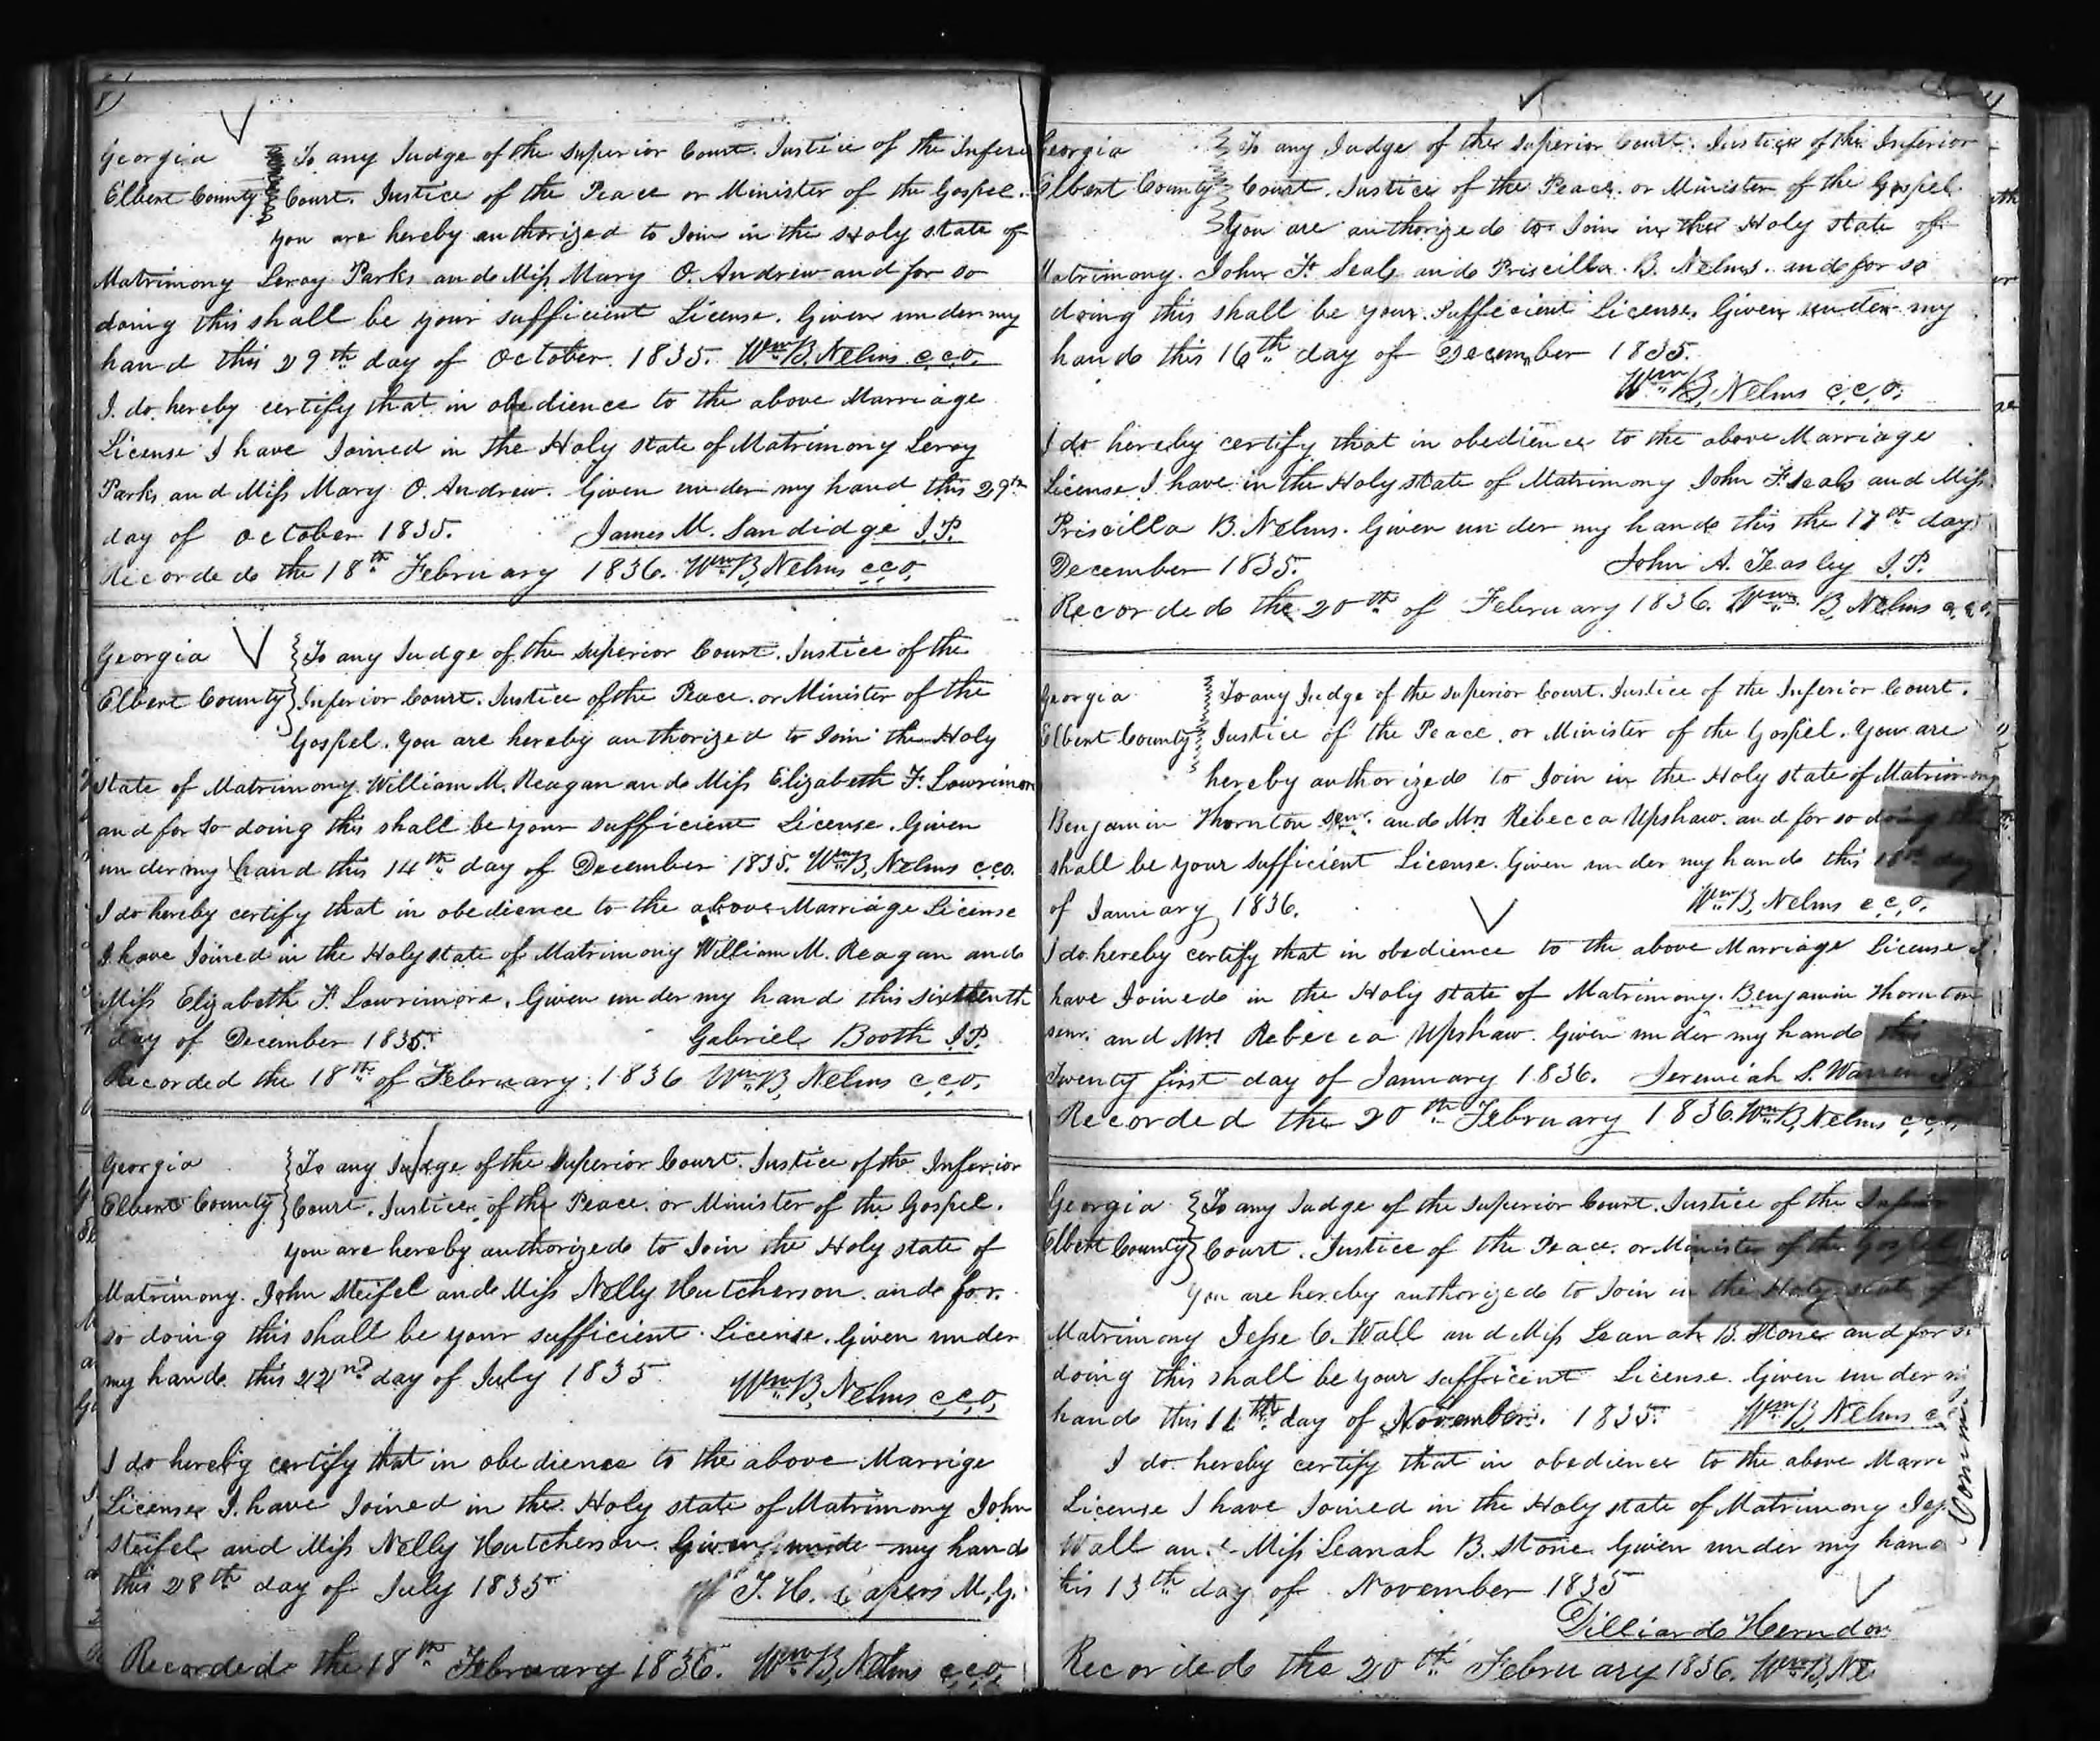 Georgia To any Judge of the Superior Court. Justice of the Inferi
Elbert County Court. Justice of the Peace or Minister of the Gospel.
you are hereby authorized to Join in the Holy state of
Matrimony Leroy Parks and Miss Mary O. Andrew and for so
doing this shall be your sufficient License. Given under my
hand this 29th day of October. 1835. Wm B. Nelms c.c.o.
I do hereby certify that in obedience to the above Marriage
License I have Joined in the Holy state of Matrimony Leroy
Parks and Miss Mary O. Andrew. Given under my hand this 29th
day of October 1835. James M. Sandidge J.P.
Recorded the 18th February 1836. Wm B. Nelms c.c.o.
Georgia To any Judge of the Superior Court. Justice of the
Elbert County Inferior Court. Justice of the Peace. or Minister of the
Gospel. You are hereby authorized to Join the Holy
state of Matrimony. William M. Reagan and Miss Elizabeth F. Lowrimore
and for so doing this shall be your sufficient License. Given
under my hand this 14th day of December 1835. Wm B. Nelms c.c.o.
I do hereby certify that in obedience to the above Marriage License
I have Joined in the Holy state of Matrimony William M. Reagan and
Miss Elizabeth F. Lowrimore. Given under my hand this sixteenth
day of December 1835. Gabriel Booth J.P.
Recorded the 18th of February. 1836 Wm B. Nelms c.c.o.
Georgia To any Judge of the Superior Court. Justice of the Inferior
Elbert County Court. Justice of the Peace. or Minister of the Gospel.
you are hereby authorized to Join the Holy state of
Matrimony. John Steifel and Miss Nelly Hutcherson. and for.
so doing this shall be your sufficient License. Given under
my hand. this 22nd day of July 1835
Wm B. Nelms c.c.o.
I do hereby certify that in obedience to the above Marrige
License I have Joined in the Holy state of Matrimony John
Steifel and Miss Nelly Hutcherson. Given unde my hand
this 28th day of July 1835 T. H. Capers M.G.
Recorded the 18th February 1836. Wm B. Nelms c.c.o.
Georgia To any Judge of the Superior Court. Justice of the Inferior
Elbert County Court. Justice of the Peace. or Minister of the Gospel.
You are authorized to Join in the Holy state of
Matrimony. John F. Seals and Priscilla B. Nelms. and for so
doing this shall be your Sufficient License. Given under my
hand this 16th day of December 1835.
Wm B. Nelms c.c.o.
I do hereby certify that in obedience to the above Marriage
License. I have in the Holy state of Matrimony John F. Seals and Miss
Priscilla B. Nelms. Given under my hand this the 17th day
December 1835. John A. Teasley J.P.
Recorded the 20th of February 1836. Wm B. Nelms c.c.o.
Georgia To any Judge of the Superior Court. Justice of the Inferior Court.
Elbert County Justice of the Peace. or Minister of the Gospel. You are
hereby authorized to Join in the Holy state of Matrimony
Benjamin Thornton senr. and Mrs Rebecca Upshaw. and for so doing this
shall be your sufficient License. Given under my hand this 18th day
of January 1836. Wm B. Nelms c.c.o.
I do hereby certify that in obedience to the above Marriage License I
have Joined in the Holy state of Matrimony. Benjamin Thornton
senr. and Mrs Rebecca Upshaw. Given under my hand this
Twenty first day of January 1836. Jeremiah S. Warren
Recorded the 20th February 1836. Wm B. Nelms c.c.o.
Georgia To any Judge of the Superior Court. Justice of the Inferior
Elbert County Court. Justice of the Peace. or Minister of the Gospel
You are hereby authorized to Join in the Holy state of
Matrimony Jesse C. Wall and Miss Leanah B. Stone and for so
doing this shall be your sufficient License. Given under my
hand this 11th day of November. 1835. Wm B. Nelms c
I do hereby certify that in obedience to the above Marri
License I have Joined in the Holy state of Matrimony Jes
Wall and Miss Leanah B. Stone Given under my hand
this 13th day of November 1835
Dilliard Herndon
Recorded the 20th February 1836. Wm B. Ne